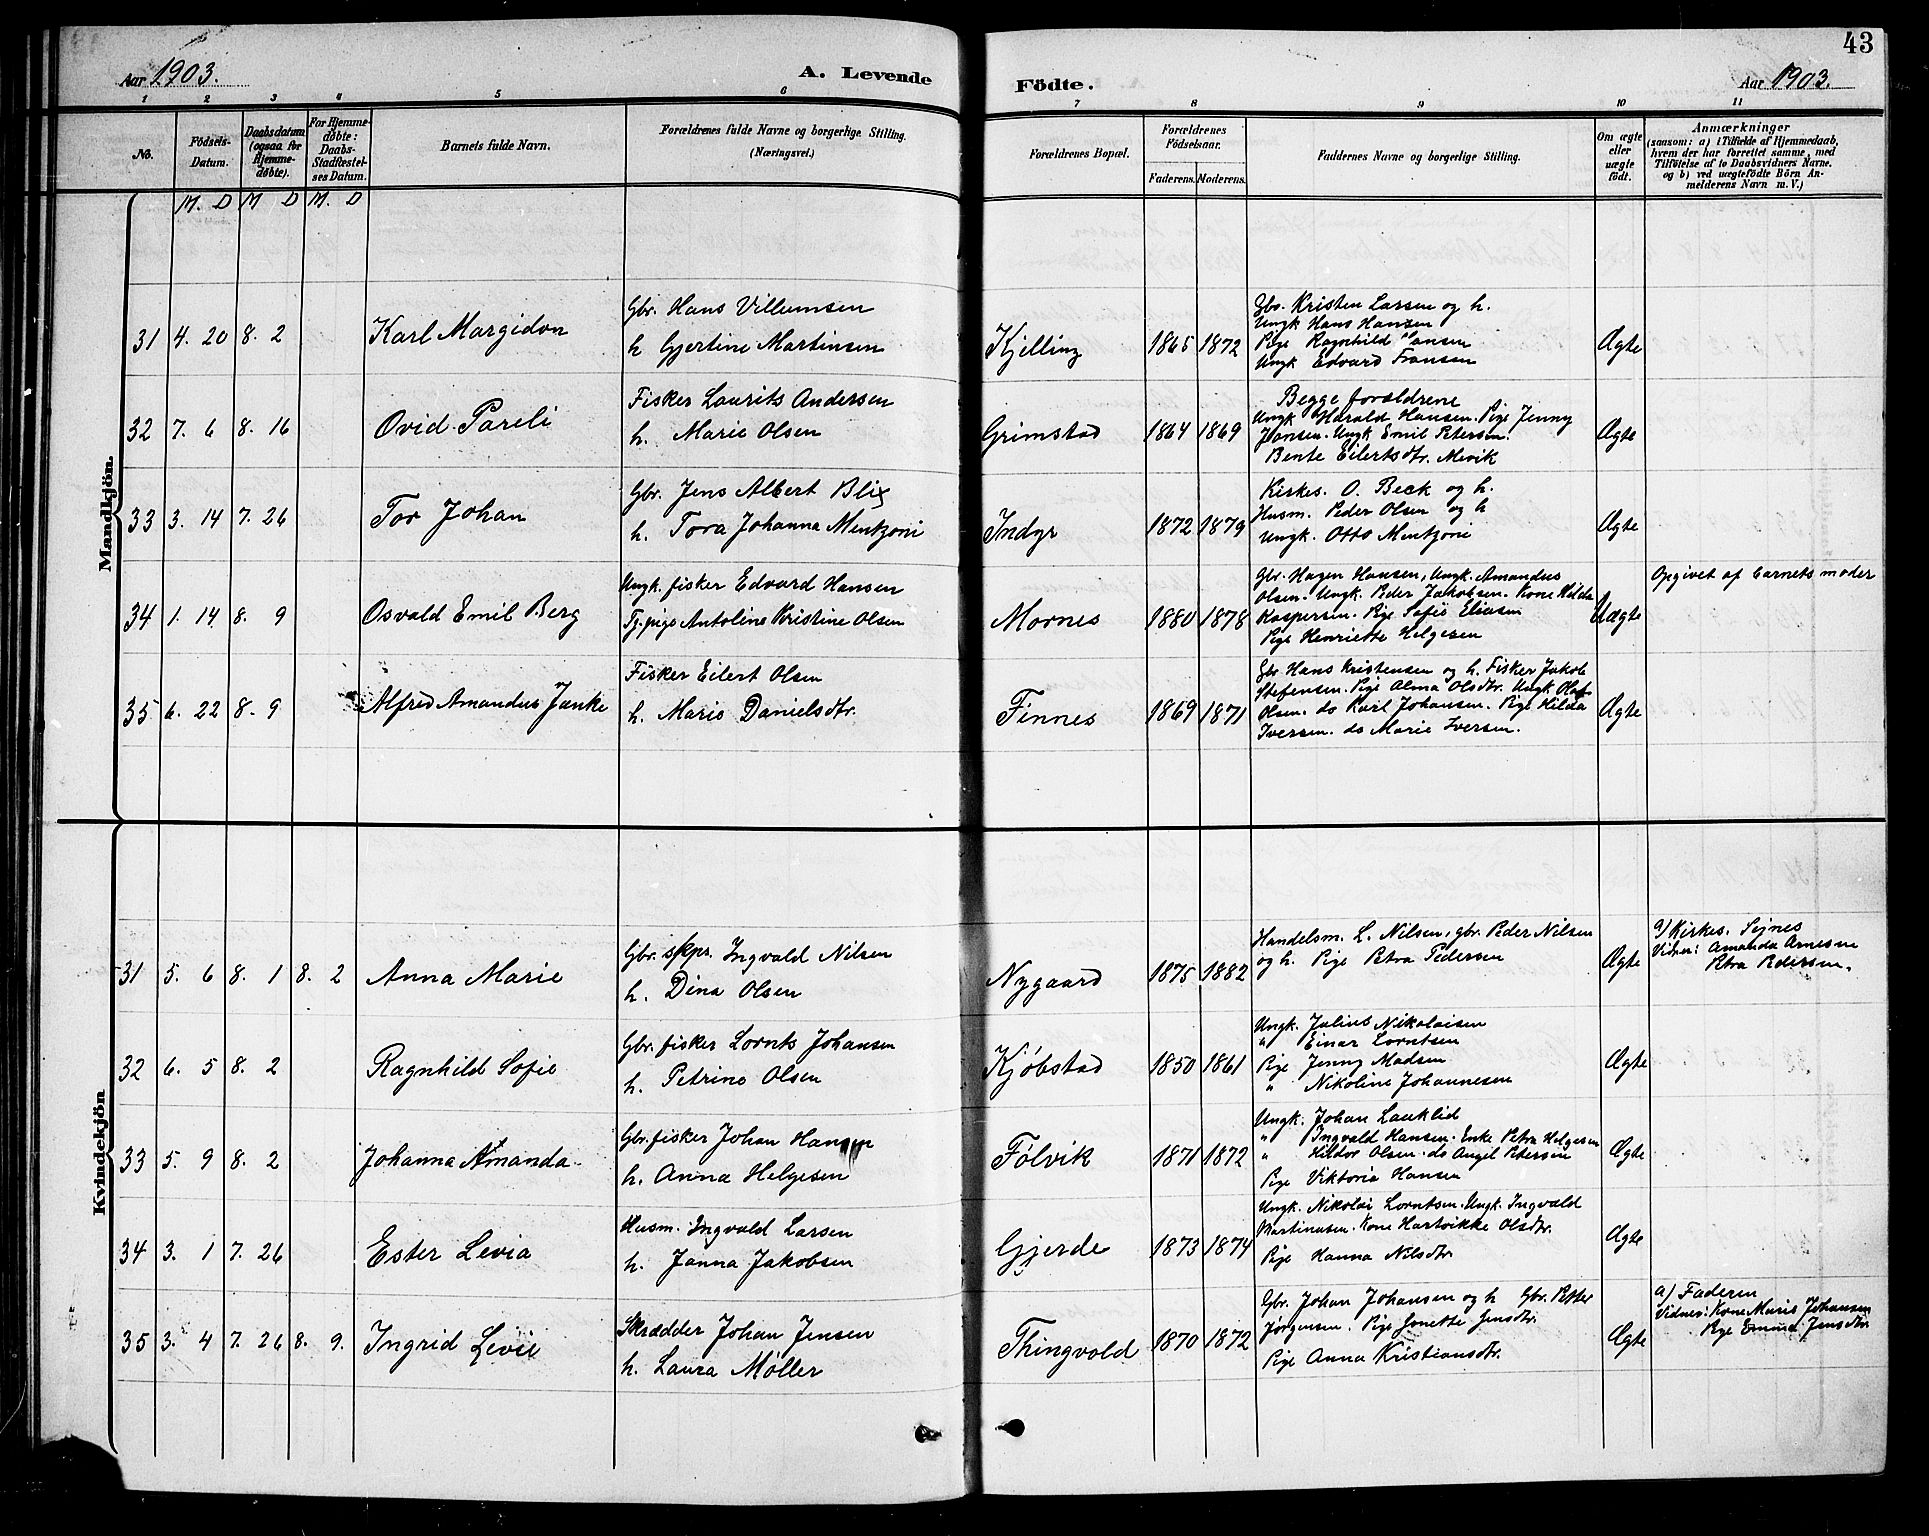 43
Aar 1903.
A. Levende
Födte.
Aar 1903.
1 2 3 4 5 6 7 8 9 10 11
No.
Födsels-
Datum.
Daabsdatum
(ogsaa for
Hjemme-
døbte).
For Hjemme-
døbte:
Daabs-
Stadfæstel-
ses Datum.
Barnets fulde Navn.
Forældrenes fulde Navne og borgerlige Stilling.
(Næringsvei.)
Forældrenes Bopæl.
Forældrenes
Födselsaar.
Faderens. Moderens.
Faddernes Navne og borgerlige Stilling.
Om ægte
eller
uægte
födt.
Anmærkninger
(saasom: a) i Tilfælde af Hjemmedaab,
hvem der har forrettet samme, med
Tilföielse af to Daabsvidners Navne.
og b) ved uægtefödte Börn An-
melderens Navn m. V.)
M. D M D M. D
Mandkjön.
31 4. 20 8. 2
Karl Margidon
Gbr. Hans Villumsen
h Gjertine Martinsen
Kjelling
1865 1872
Gbr. Kristen Larsen og h.
Ungk Hans Hansen
Pige Ragnhild Hansen
Ungk Edvard Fransen
Ægte
32 7. 6 8. 16
Ovid Pareli
Fisker Laurits Andersen
h. Marie Olsen
Grimstad
1864 1869
Begge forældrene
Ungk Harald Hansen. Pige Jenny
Jansen. Ungk Emil Petersen.
Bente Eilertsdtr. Mevik
Ægte
33 3. 14 7. 26
Tor Johan
Gbr. Jens Albert Blix
h. Tora Johanna Mentzoni
Indyr
1872 1879
Kirkes. O. Beck og h.
Husm. Peder Olsen og h
Ungk. Otto Mentzoni
Ægte
34 1. 14 8. 9
Osvald Emil Berg
Ungk. fisker Edvard Hansen
Tj.pige Antoline Kristine Olsen
Mornes
1880 1878
Gbr. Hagen Hansen, Ungk. Amandus
Olsen. Ungk. Peder Jakobsen. Kone Hilda
Kaspersen. Pige Sofie Eliasen
Pige Henriette Helgesen
Uægte
Opgivet af barnets moder
35 6. 22 8. 9
Alfred Amandus Janke
Fisker Eilert Olsen
h. Maris Danielsdtr.
Finnes
1869 1871
Gbr Hans Kristensen og h. Fisker Jakob
Stefensen. Pige Alma Olsdtr. Ungk Olaf
Olsen. do Karl Johansen. Pige Hilda
Iversen. do Marie Iversen.
Ægte
Kvindekjön
31 5. 6 8. 1 8. 2
Anna Marie
Gbr. skps. Ingvald Nilsen
h. Dina Olsen
Nygaard
1875 1882
Handelsm. L. Nilsen, gbr. Peder Nilsen
og h. Pige Petra Pedersen
Ægte
a) Kirkes. Signes
Vidner: Amanda Arnesen
Petra Pedersen.
32 6. 5 8. 2
Ragnhild Sofie
Gbr. fisker Lornts Johansen
h. Petrine Olsen
Kjøbstad
1850 1861
Ungk. Julius Nikolaisen
" Einar Lorntsen
Pige Jenny Madsen
" Nikoline Johannesen
Ægte
33 5. 9 8. 2
Johanna Amanda
Gbr. fisker Johan Hansen
h. Anna Helgesen
Følvik
1871 1872
Ungk. Johan Lauklid
" Ingvald Hansen. Enke Petra Helgesen
" Hildor Olsen. do Angel Petersen
Pige Viktoria Hansen
Ægte
34 3. 1 7. 26
Ester Levia
Husm. Ingvald Larsen
h. Janna Jakobsen
Gjerde
1873 1874
Ungk. Nikolai Lorntsen. Ungk. Ingvald
Martinusen. Kone Hartvikke Olsdtr.
Pige Hanna Nilsdtr.
Ægte
35 3. 4 7. 26 8. 9.
Ingrid Levie
Skrædder Johan Jensen
h. Laura Møller
Thingvold
1870 1872
Gbr. Johan Johansen og h Gbr. Petter
Jørgensen. Pige Jonette Jensdtr.
Pige Anna Kristiansdtr.
Ægte
a) Faderen
Vidner: Kone Maris Johansen
Pige Emma Jensdtr.